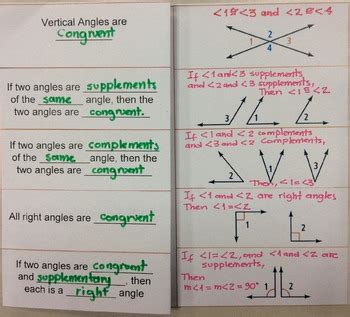 Vertical Angles are
Congruent
If two angles are supplements
of the same angle, then the
two angles are congruent.
If two angles are complements
of the same angle, then the
two angles are congruent
All right angles are congruent
If two angles are congruent
and supplementary, then
each is a right angle
<1≅<3 and <2≅<4
2
1 3
4
If <1and<3 supplements,
and <2 and <3 supplements,
Then <1≅<2.
3 1 2
If <1 and <2 complements
and <3 and <2 Complements,
2 1 3
Then, <1=<3
If <1 and <2 are right angles
Then <1=<2
1
2
If <1=<2, and <1 and <2 are
supplements,
Then
m<1=m<2=90° 1 2